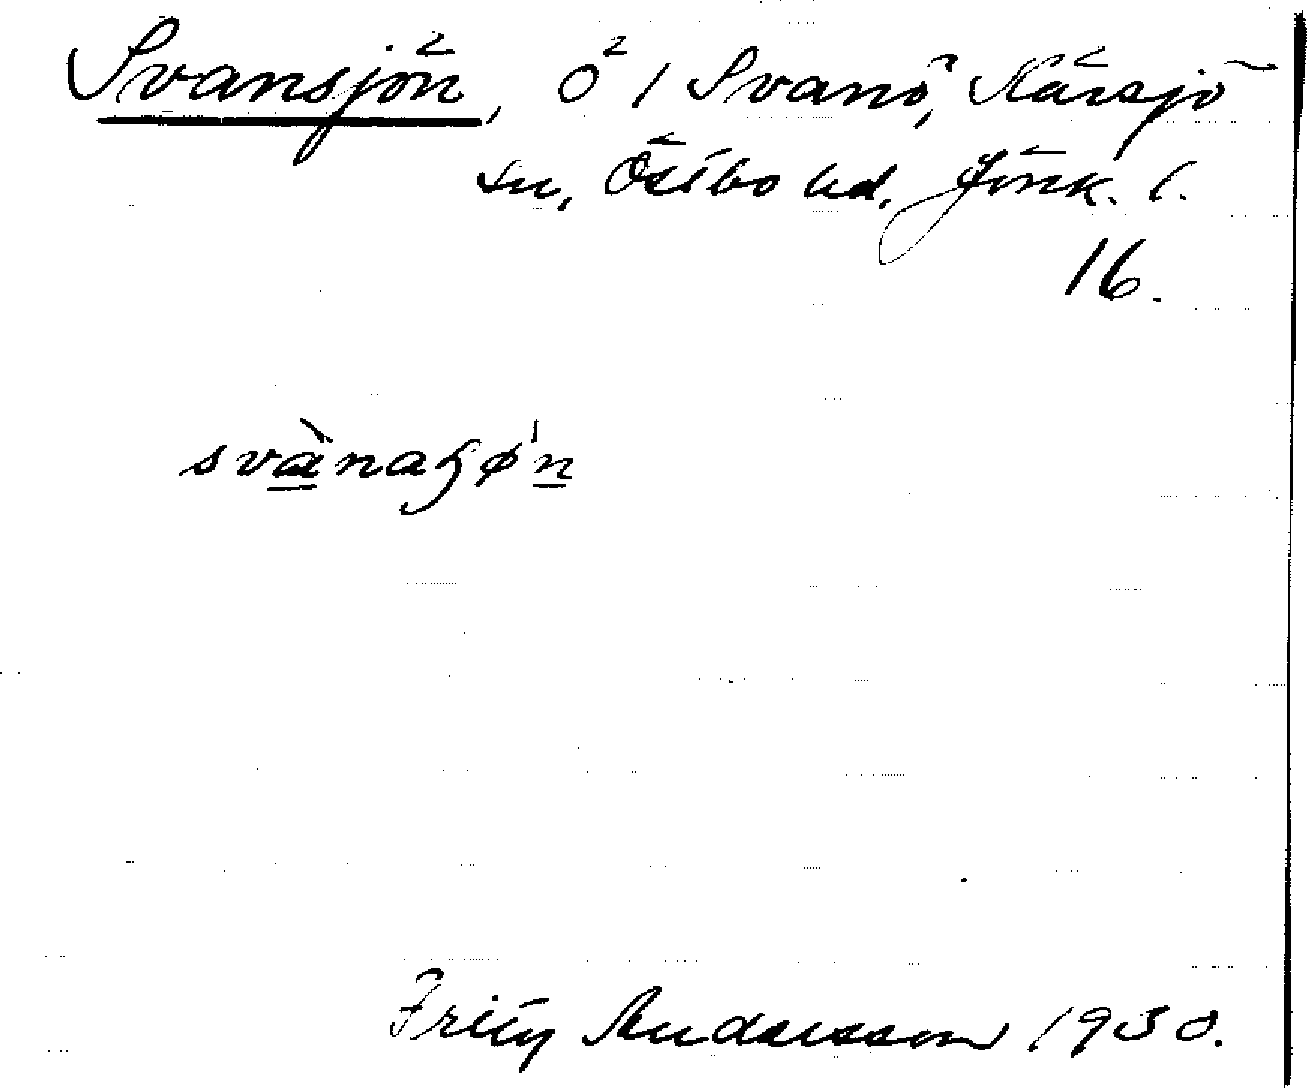 Svansjön, ö i Svanö, Kärsjö
sn, Östbo hd, Jönk. l.
16.
svànaɧøn
Fritz Andersson 1930.